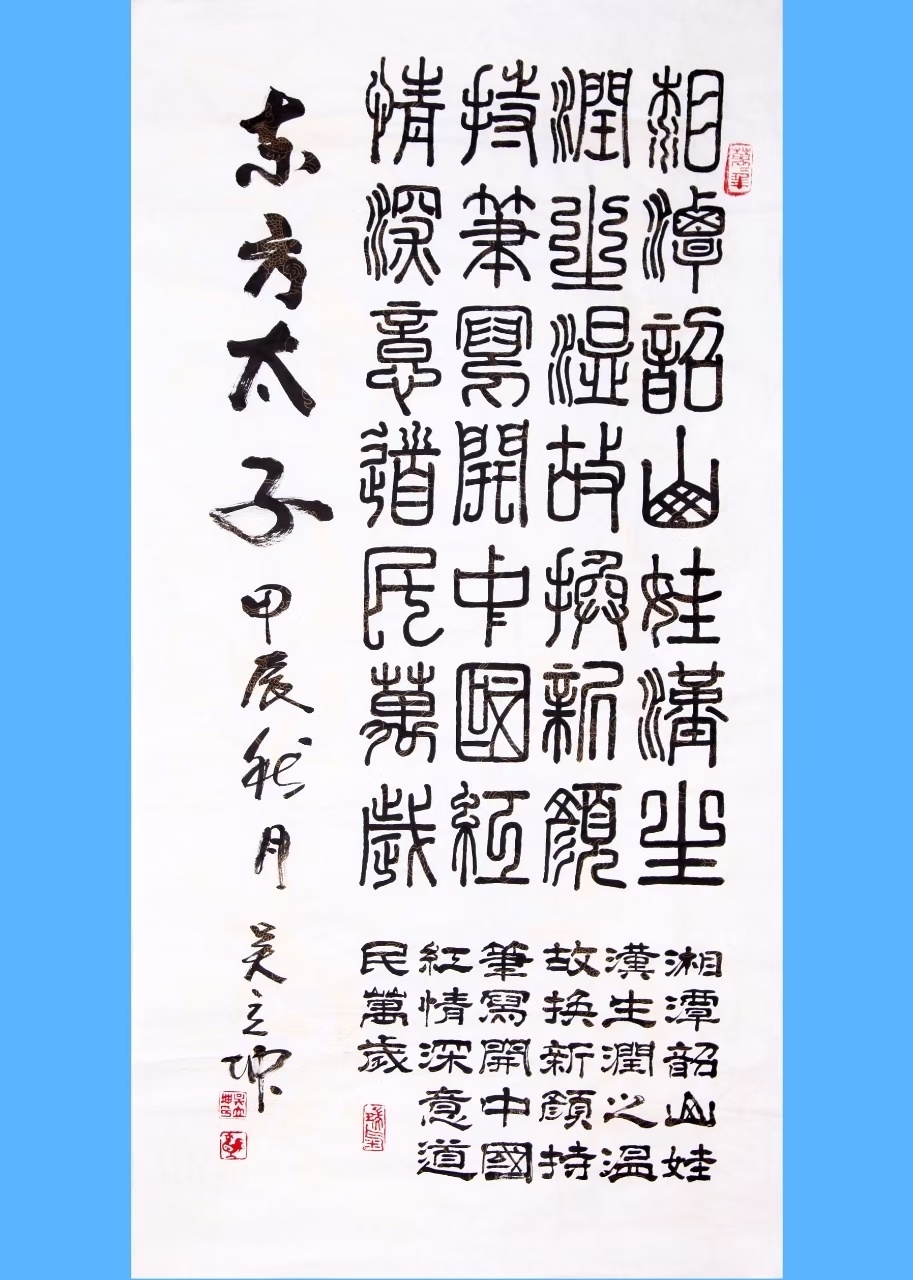 湘潭韶山娃漢生
潤之温故換新顔
持筆寫開中國紅
情深意道民萬歲
湘潭韶山娃
漢生潤之温
故换新顔持
筆寫開中國
紅情深意道
民萬歲
东方太子 甲辰秋月 吴立坤
吴立坤印